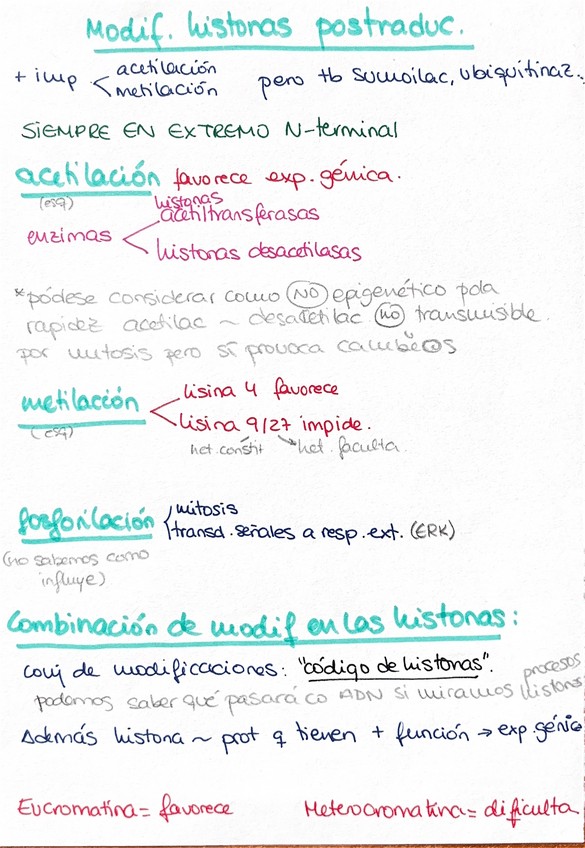 Modif. histonas postraduc.
+ imp acetilación
metilación
pero tb sumoilac, ubiquitinaz.
SIEMPRE EN EXTREMO N-terminal
acetilación favorece exp. génica.
(esq)
histonas
acetiltransferasas
enzimas
histonas desacetilasas
*pódese considerar como NO epigenético pola
rapidez acetilac ~ desacetilac no transmisible.
por mitosis pero sí provoca cambios
metilación
lisina 4 favorece
lisina 9/27 impide.
(esq)
het. constit het. faculta.
fosforilación
mitosis
transd. señales a resp. ext. (ERK)
(no sabemos como
influye)
Combinación de modif en las histonas:
conj de modificaciones: "código de histonas".
procesos
podemos saber qué pasará co ADN si miramos histonas
Además histona ~ prot q tienen + función → exp. génic
Eucromatina = favorece
Heterocromatina = dificulta